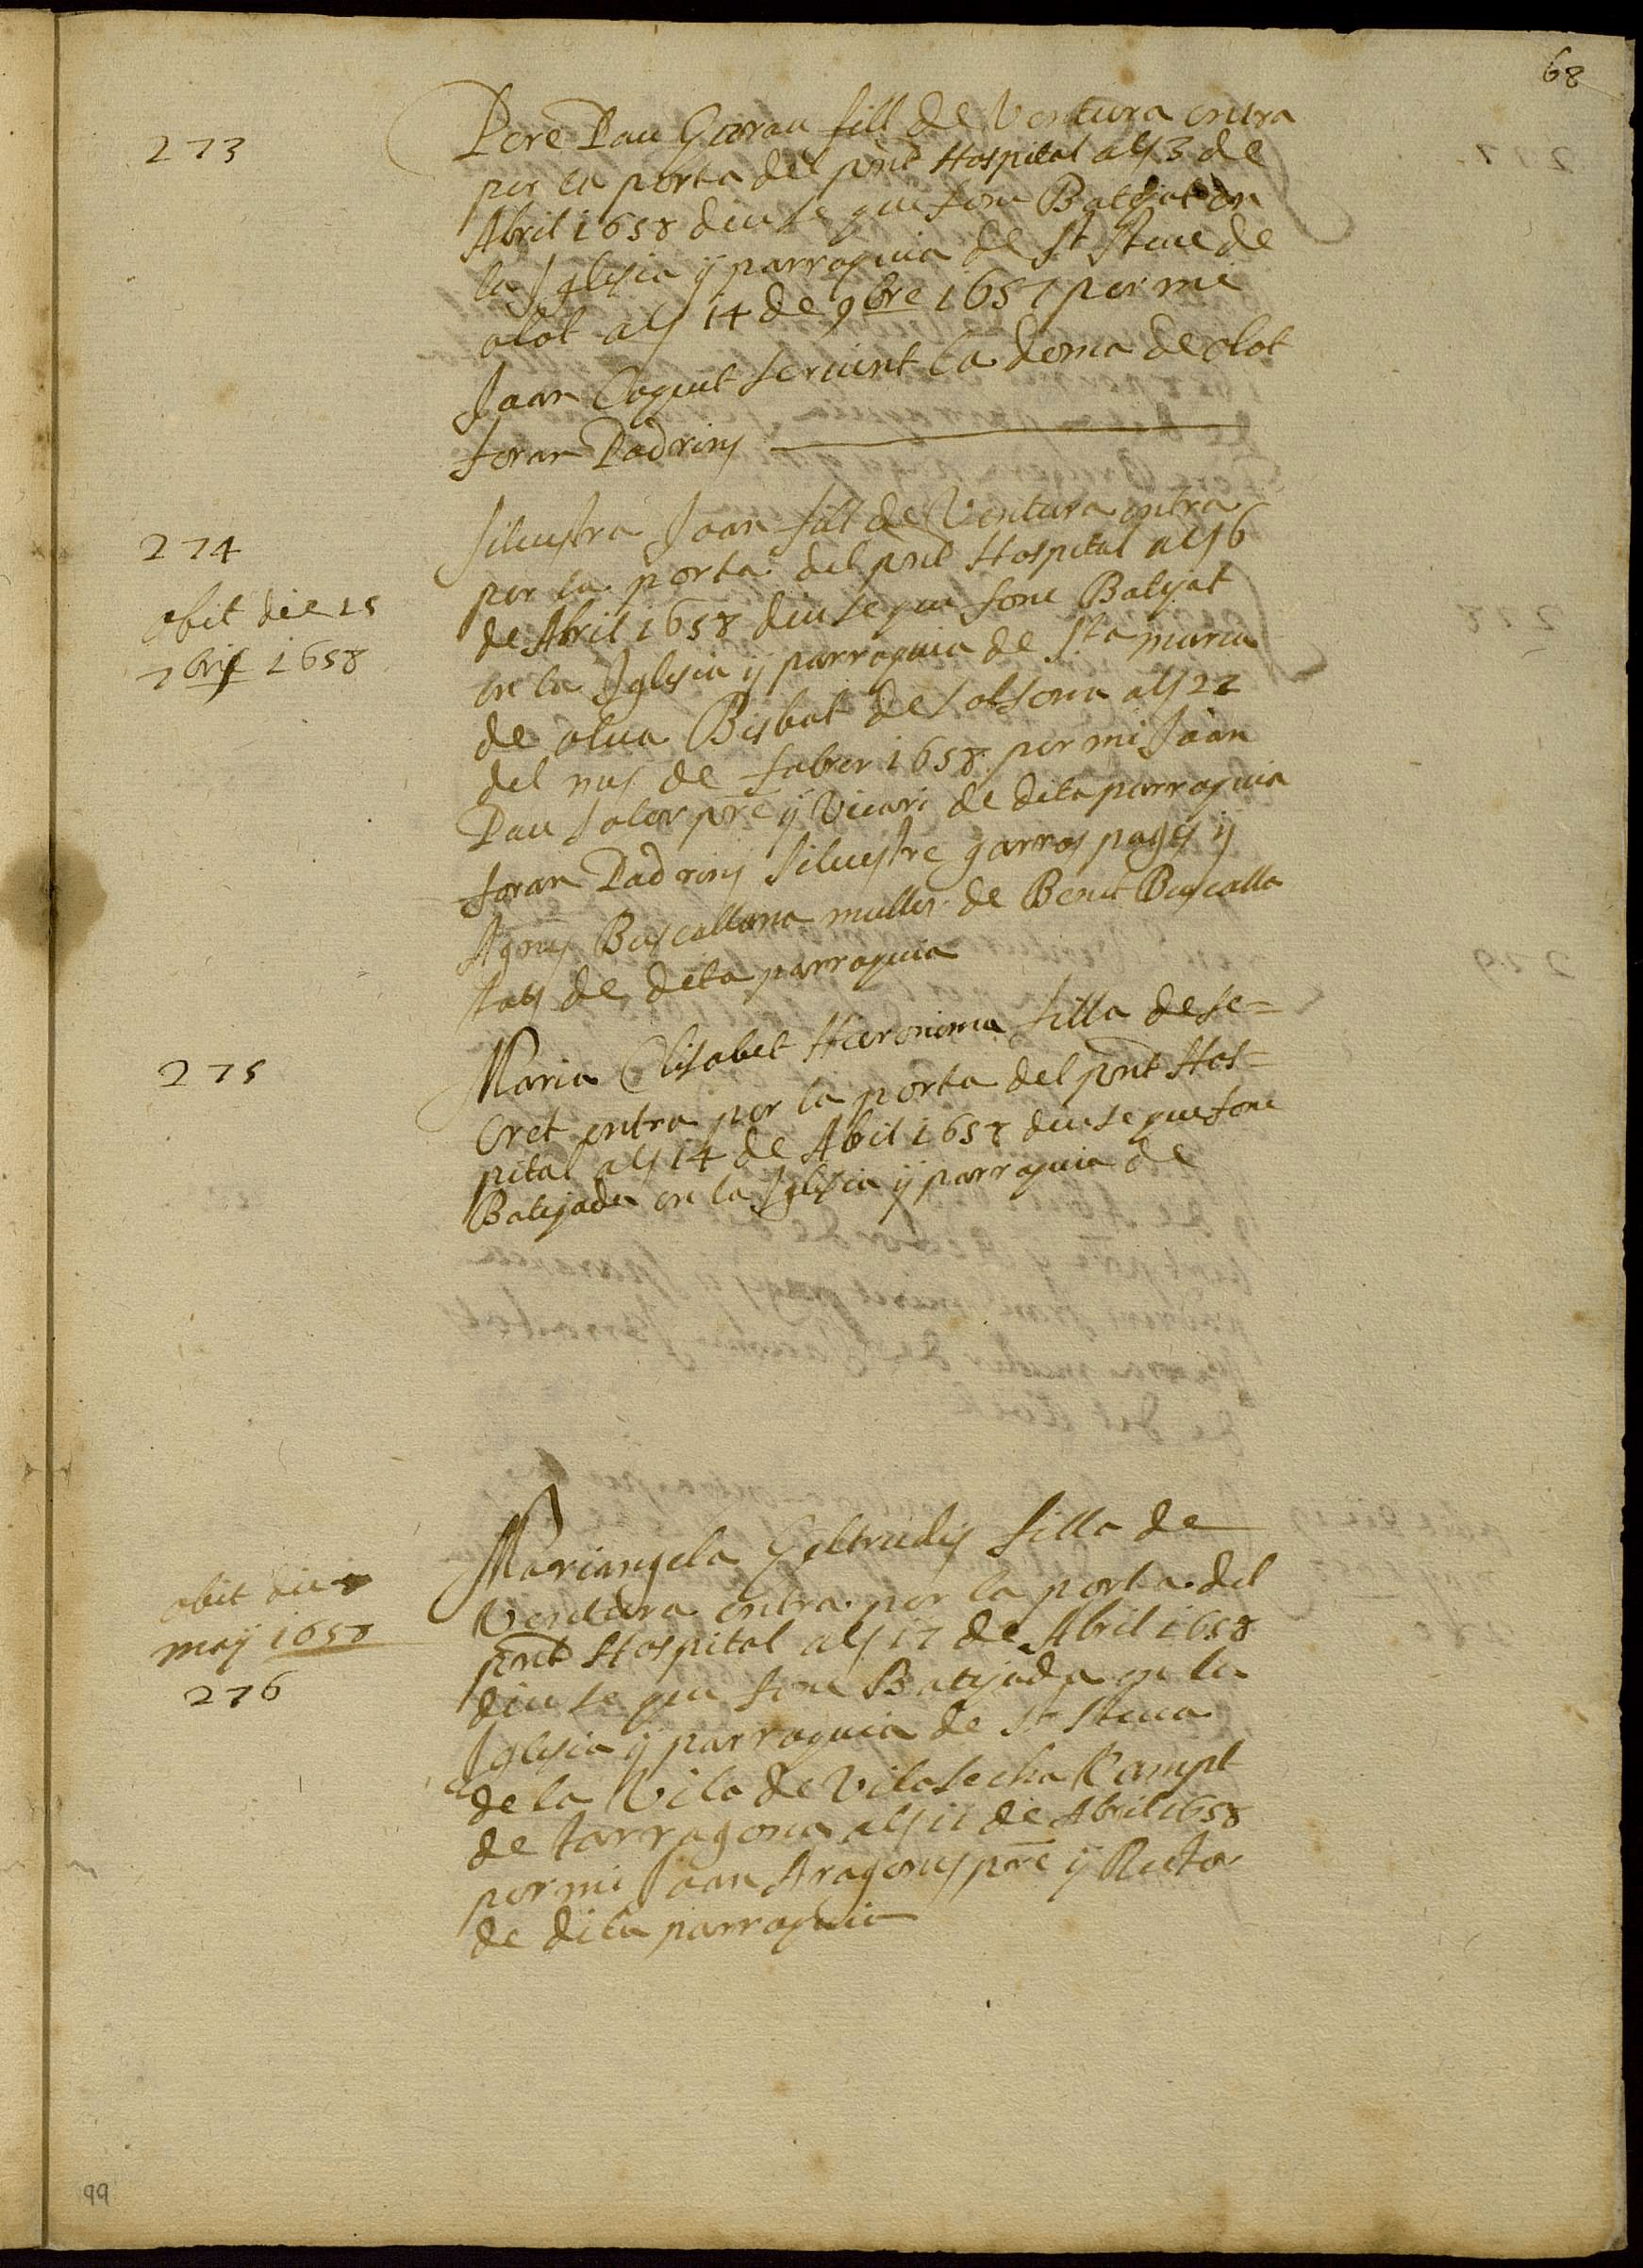 68
273
Pere Pau Guerau fill de Ventura entra
per la porta del pnt Hospital als 3 de
Abril 1658 diu se que fonc Batejat en
la Iglesia ÿ parroquia de St Steue de
olot als 14 de 9bre 1657 per mi
Joan Coquet seruint la doma de olot
foran Padrins
274
obit die 25
7bris 1658
Siluestra Joan fill de Ventura entra
per la porta del pnt Hospital als 6
de Abril 1658 diu se que fonc Batejat
en la Iglesia ÿ parroquia de Sta maria
de olua Bisbat de Solsona als 22
del mes de fabrer 1658 per mi Joan
Pau Soler pre ÿ Vicari de dita parroquia
foran Padrins Siluestre garros pages ÿ
Agnes Buscallana muller de Benet Buscalla
tots de dita parroquia
275
Maria Elisabet Hieronima filla de se=
cret entra per la porta del pnt Hos=
pital als 14 de Abil 1658 diu se que fonc
Batejada en la Iglesia ÿ parroquia de
obit die
maÿ 1658
276
Mariangela Geltrudis filla de
Ventura entra per la porta del
pnt Hospital als 17 de Abril 1658
diu se que fonc Batejada en la
Iglesia ÿ parroquia de St Steua
de la Vila de Vilasecha Campt
de tarragona als 11 de Abril 1658
per mi Joan Aragones pre ÿ Rector
de dita parroquia
99